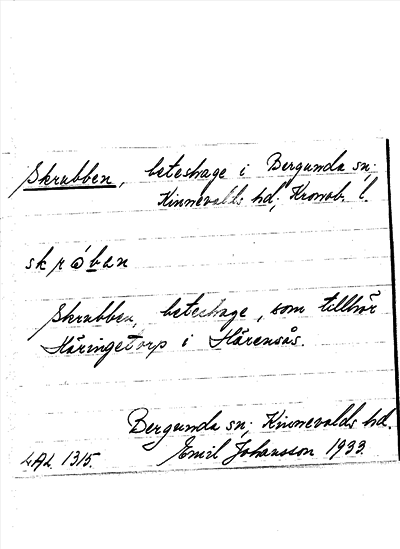 Skrubben, beteshage i Bergunda sn;
Kinnevalds hd; Kronob. l.
skrǿban
Skrubben, beteshage, som tillhör
Häringetorp i Härensås.
Bergunda sn; Kinnevalds hd.
LAL 1315. Emil Johansson 1933.